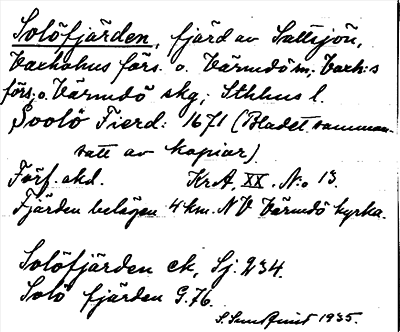 Solöfjärden, fjärd av Saltsjön,
Vaxholms förs. o. Värmdö m; Vaxh:s
förs. o. Värmdö skg; Sthlms l.
Soolö Fierd: 1671 (Bladet samman-
satt av kopior)
Förf. okd. KrA, XX. N:o 13.
Fjärden belägen 4 km. NV Värmdö kyrka.
Solöfjärden ek, Sj. 234.
Solö fjärden G.76.
S. Sundquist 1935.